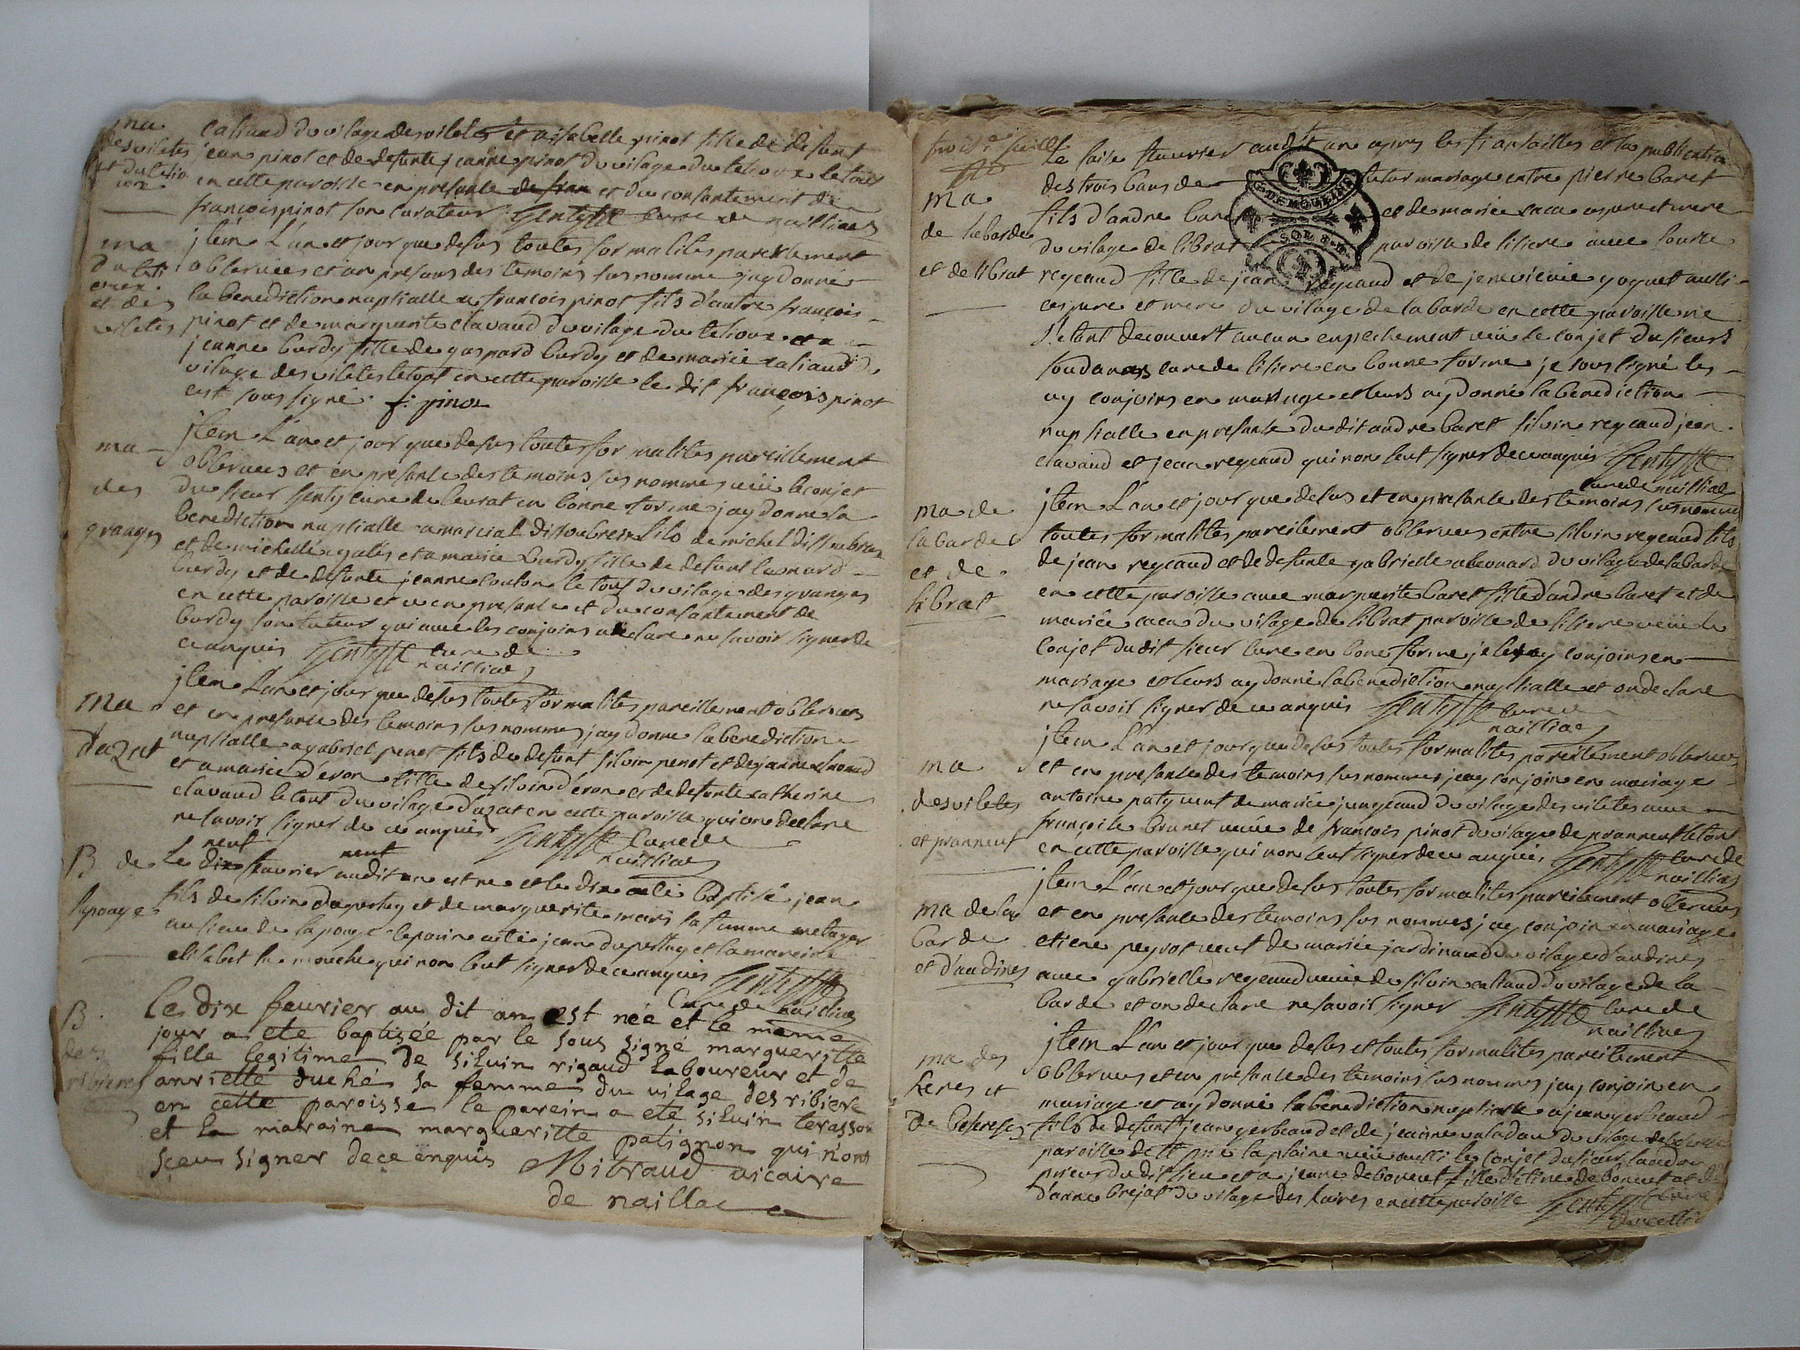 ma
des viletes
et du letio
caliaud du vilage des viletes et a isabelle pinot fille de defunt
jean pinot et de defunte jeanne pinot du vilage du letioux le tout
en cette paroisse en presante et du consantement de
françois pinot son curateur Gentyst cure de nailliac
ma
et des
viletes
jtem L'an et jour que desus toutes formalites pareillement
obseruées et an presans des temoins sus nomme jay donné
la benediction nuptialle a françois pinot fils d'autre françois
pinot et de marguerite clavaud du vilage du letioux et a
jeanne burdy fille de gaspard burdy et de mariee caliaud du
vilage des viletes le tout en cette paroisse le dit françois pinot
est sous signé f: pinot
ma
des
granges
jtem L'an et jour que desus toutes formalites pareillement
obseruees et en presante des temoins sus nommes veüe le conjet
du sieur Genty cure de en bonne forme jay donne la
benediction nuptialle a marcial dissoubres fils de michel dissoubres
et de michelle et a mariee burdy fille de defunt leonard
burdy et de defunte jeanne couton le tout du vilage des granges
en cette paroisse et ce en presante et du consantement de
burdy son tuteur qui auec les conjoins a declare ne savoir signer de
ce anquis Gentyst cure de
nailliac
ma
dazat
jtem L'an et jour que desus toutes formalites pareillement obseruees
et en presante des temoins sus nommes jay donne la benediction
nuptialle a gabriel penot fils de defunt silvin penot et de janne
et a mariee d'eron fille de silvin d'eron et de defunte catherine
clavaud le tout du vilage d'azat en cette paroisse qui on declare
ne savoir signer de ce anquis Gentyst cure de
nailliac
B de
lapouge
neuf neuf
Le dix feuvrier audit an est ne et le dix a été baptisé jean
fils de silvin duperthuy et de marguerite maris sa famme metayer
au lieu de la pouge le parin a été jean duperthuy et la mareine
elisabet la mouche qui non seut signer de ce anquis Gentyst
cure de nailliac
B.
des
ribieres
Le dix feurier au dit an est née et le meme
jour a eté baptisée par le sous signé margueritte
fille legitime de siluin rigaud laboureur et de
anriette duché sa femme du vilage des ribiere
en cette paroisse le parein a eté siluin terasson
et la maraine margueritte patignon qui n'ont
sceu signer dece enquis Mitraud vicaire
de naillac
ma
de labarde
et de librat
Le saise feuurier audit an apres les fiansailles et la publication
des trois bans de futur mariage entre pierre baret
fils d'andre baret et de mariee caca ses pere et mere
du vilage de librat paroisse de lisiere auec louise
regeaud fille de jean regeaud et de jenevieuie goguet aussi
ses pere et mere du vilage de la barde en cette paroisse ne
s'etant decouvert aucun enpechement veüe le conjet du sieur
soudanas cure de lisiere en bonne forme je sous signé les
ay conjoins en mariage et leurs ay donné la benediction
nuptialle en presante du dit andre baret silvin regeaud jean
clavaud et jean regeaud qui non seut signer de ce anquis Gentyst
cure de nailliac
ma de
la barde
et de
librat
jtem L'an et jour que desus et en presante des temoins sus nommes
toutes formalites pareillement obseruees entre silvin regeaud fils
de jean regeaud et de defunte gabrielle aleonard du vilage de la barde
en cette paroisse auec marguerite baret fille d'andre baret et de
mariee caca du vilage de librat paroisse de lisiere veüe le
conjet dudit sieur cure en bone forme je les ay conjoins en
mariage et leurs ay donné la benediction nuptialle et on declare
ne savoir signer de ce anquis Gentyst cure de
nailliac
ma
des viletes
et pranneut
jtem L'an et jour que desus toutes formalites pareillement obseruees
et en presante des temoins sus nommes jay conjoin en mariage
antoine paty veuf de mariee jungeaud du vilage des viletes auec
françoise brunet veuue de françois pinot du vilage de pranneut le tout
en cette paroisse qui non seut signer de ce anquis Gentyst cure de
nailliac
ma de la
barde
et d'audines
jtem L'an et jour que desus toutes formalites pareillement obseruees
et en presante des temoins sus nommes jay conjoin en mariage
etiene peyrot veuf de mariee jardinaud du vilage d'audines
auec gabrielle regeaud veuue de silvin caliaud du vilage de la
barde et on declare ne savoir signer Gentyst cure de
nailliac
ma des
leres et
jtem L'an et jour que desus et toutes formalites pareillement
obseruees et en presante des temoins sus nommes jay conjoin en
mariage et ay donné la benediction nuptialle a jean gerbeaud
fils de defunt jean gerbeaud et de jeanne valadau du vilage
paroisse de st prie la plaine veüe aussi le conjet du sieur
prieur du dit lieu et a jeanne deboueut fille d'etiene deboueut et
d'anne brejat du vilage des en cette paroisse Gentyst cure